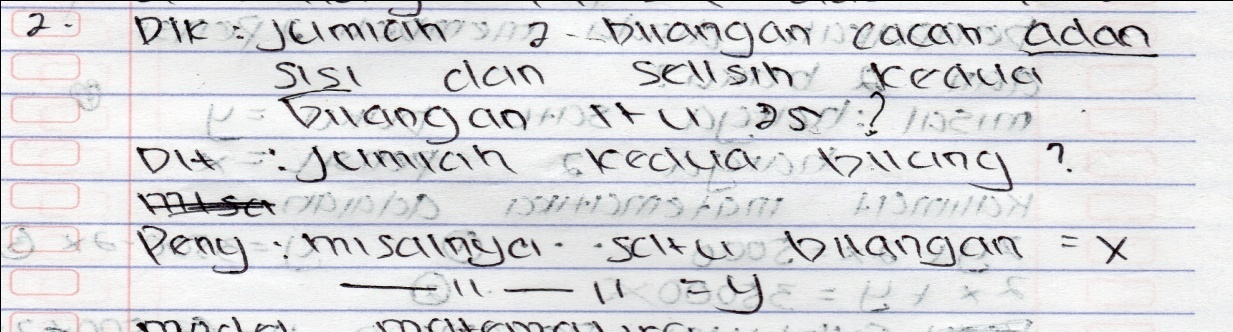 2. Dik : Jumlah 2 bilangan cacah adan
sisi dan selisih kedua
bilangan itu 25 ?
Dit : Jumlah kedua bilang ?
Peny : misalnya satu bilangan = x
— " — " = y
model matematika